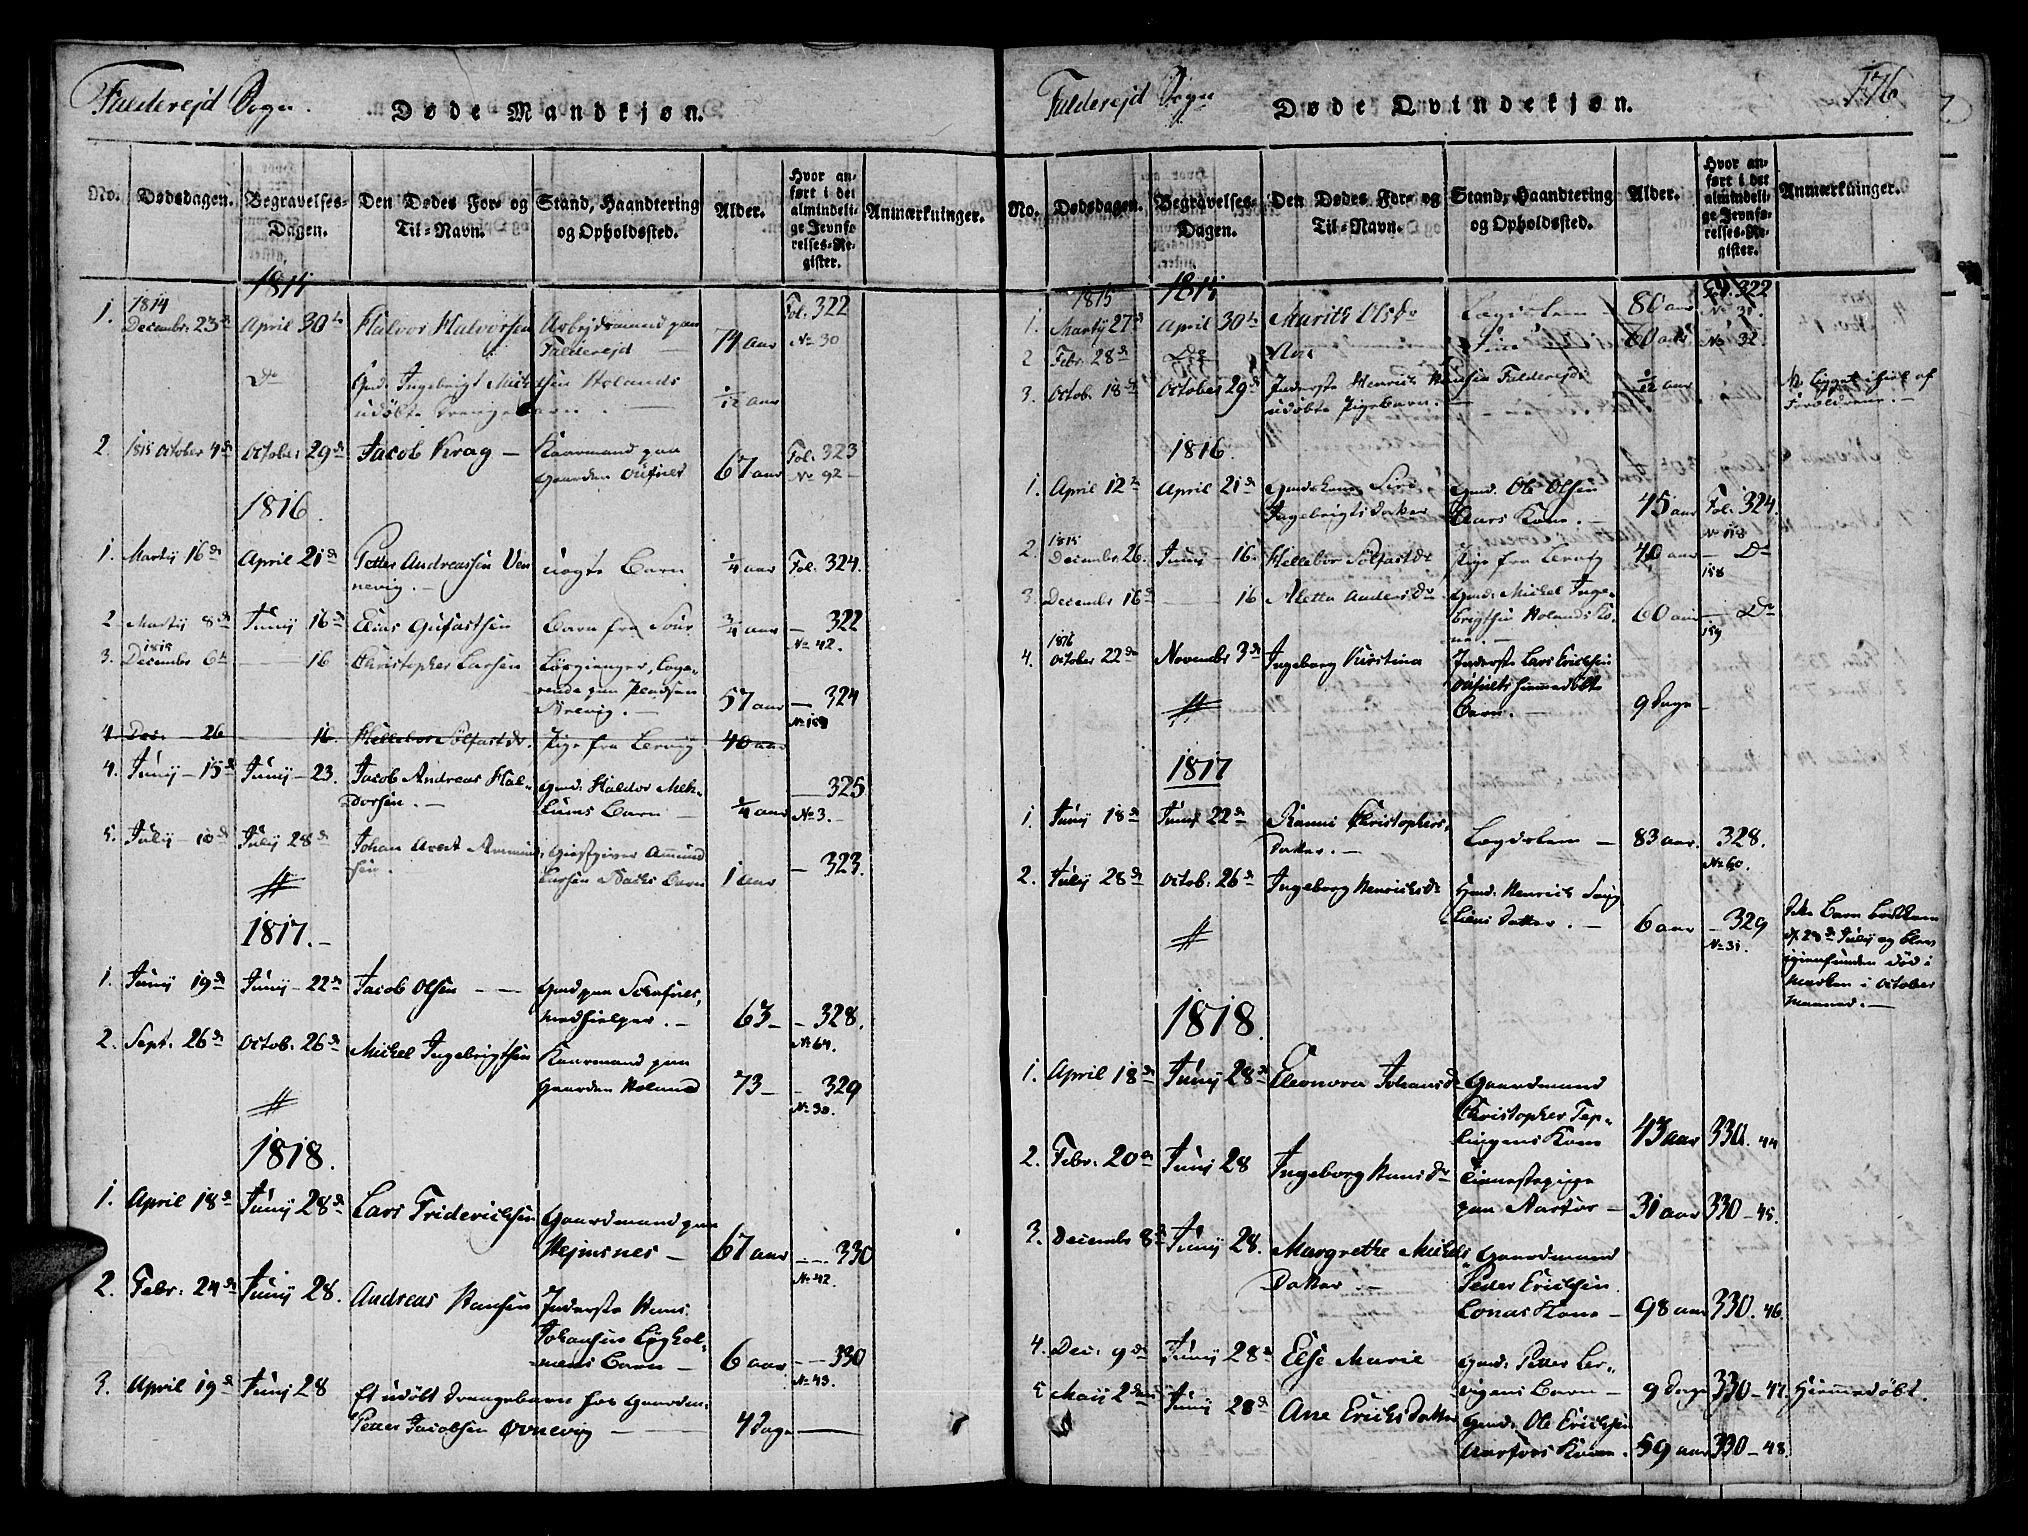 Falderejd Sogn.
Døde Mandkjøn.
No. Dødsdagen. Begravelses-Dagen. Den Dødes For- og Til-Navn. Stand, Haandtering og Opholdssted. Alder. Hvor anført i det almindelige Jevnførelses-Register. Anmærkninger.
1815
1. 1814 Decembr. 23de April 30te Halvor Halvorsen Arbejdsmand paa
Falderejd 74 aar Fol. 322 No 30
do Gmd. Ingebrigt Michelsen Holands
udøbte Drengebarn. 1/12 aar
2. 1815 October 4de October 29de Jacob Krag – Kaarmand paa
Gaarden 67 aar Fol. 323 No 92
1816
1. Martij 16de April 21de Petter Andreassen Ven
nevig. – ægte Barn 1/4 aar Fol. 324.
2 Martij 8de Junij 16de Elias Gufastsen Barn fra 3/4 aar – 322 No 42.
3. 1815 Decembr 6te 16 Christopher Larsen Løsgienger,
57 aar – 324 No 159
4 Dec. 26 16. Hellebor Sølfastdr. Pige fra Lervig 40 aar
4. Junij – 15de Junij – 23. Jacob Andreas Hal-
dorsen. – Gmd. Haldor
Barn – 1/4 aar 325 No 3.
5. Julij – 10de Julij 28de Johan Amund
sen. Giestgiver Amund
Larsen Barn 1 aar – 323
1817. –
1. Junij 19de Junij – 22de Jacob Olsen – – Gmd paa
Medhielper. – 63 – – 328. No 64.
2. Sept. 26de Octob. 26de Michel Ingebrigtsen Kaarmand paa
Gaarden Holand 73 – – 329 No 30.
1818.
1. April 18de Junij 28de Lars Friderichsen Gaardmand paa
Hejmsnes – 67 aar – 330 No 42.
2. Febr. 24de Junij 28. Andreas Hansen Inderste Hans
Johansen Løghol-
mens Barn – 6 aar – 330 No 43.
3. April 19de Junij 28 Et udøbt Drengebarn for Gaardm.
Petter Jacobsen Ørnevig – 4 Dage
Falderejd Sogn
Døde Qvindekjøn.
176
No. Dødsdagen. Begravelses-Dagen. Den Dødes For- og Til-Navn. Stand, Haandtering og Opholdssted. Alder. Hvor anført i det almindelige Jevnførelses-Register. Anmærkninger.
1815 1815
1. Martij 27de April 30te Marith Olsdr Lægdslem – 80 aar Fol. 322 No 31.
2 Febr. 28de Do 60 aar No 32
3. Octob. 18de October 29de Inderste Henrich Hansen Falderejds
udøbte Pigebarn. – 1/12 aar NB. ligget ihiel af
Forældrene. –
1816.
1. April 12te April 21de Gmdskone Siri
Ingebrigts Datter Gmd. Ole Olsen
Aars Kone. – 45 aar Fol. 324. No 118
2. 1815 December 26. Junij – 16. Hellebor Sølfastdr Pige fra Lervig 40 aar – Do 158
3. Decembr 16de 16 Aletta Andersdr Gmd. Michel Inge-
brigtsen Holands Ko-
ne. – 60 aar – Do 159
4. 1816 October 22de Novembr 3de Ingeborg Kirstina Inderste Lars Erichsen
hiemmedøbte
Barn. – 9 Dage –
1817
1. Junij 18de Junij 22de Ranni Christophers
Datter. – Lægdslem – 83 aar. 328. No 60.
2. Julij 28de Octob. 26de Ingeborg Henrichsdr Gmd. Henrich
Datter. – 6 aar – 329 No 31. Dette Barn bortkom
d. 28de Julij og blev
igienfunden død i
Marken i October
Maaned. –
1818.
1. April 18de Junij 28de Eleonora Johansdr Gaardmand
Christopher Tep-
lingens Kone 43 aar 330. 44
2. Febr. 20de Junij 28 Ingeborg Hansdr Tienestepige
paa Aarfor – 31 aar 330 – 45.
3. Decembr 8de Junij 28. Margrethe Michels
Datter. – Gaardmand
Peder Erichsen
Lonas Kone – 98 aar 330. 46.
4. Dec. 9de Junij 28de Else Marie Gmd. Petter Ler-
vigens Barn – 9 Dage 330 – 47. Hjemmedøbt.
5 Maij 2den Junij 28de Ane Erichsdatter Gmd. Ole Erichsen
Aarfors Kone. 59 aar 330 – 48.